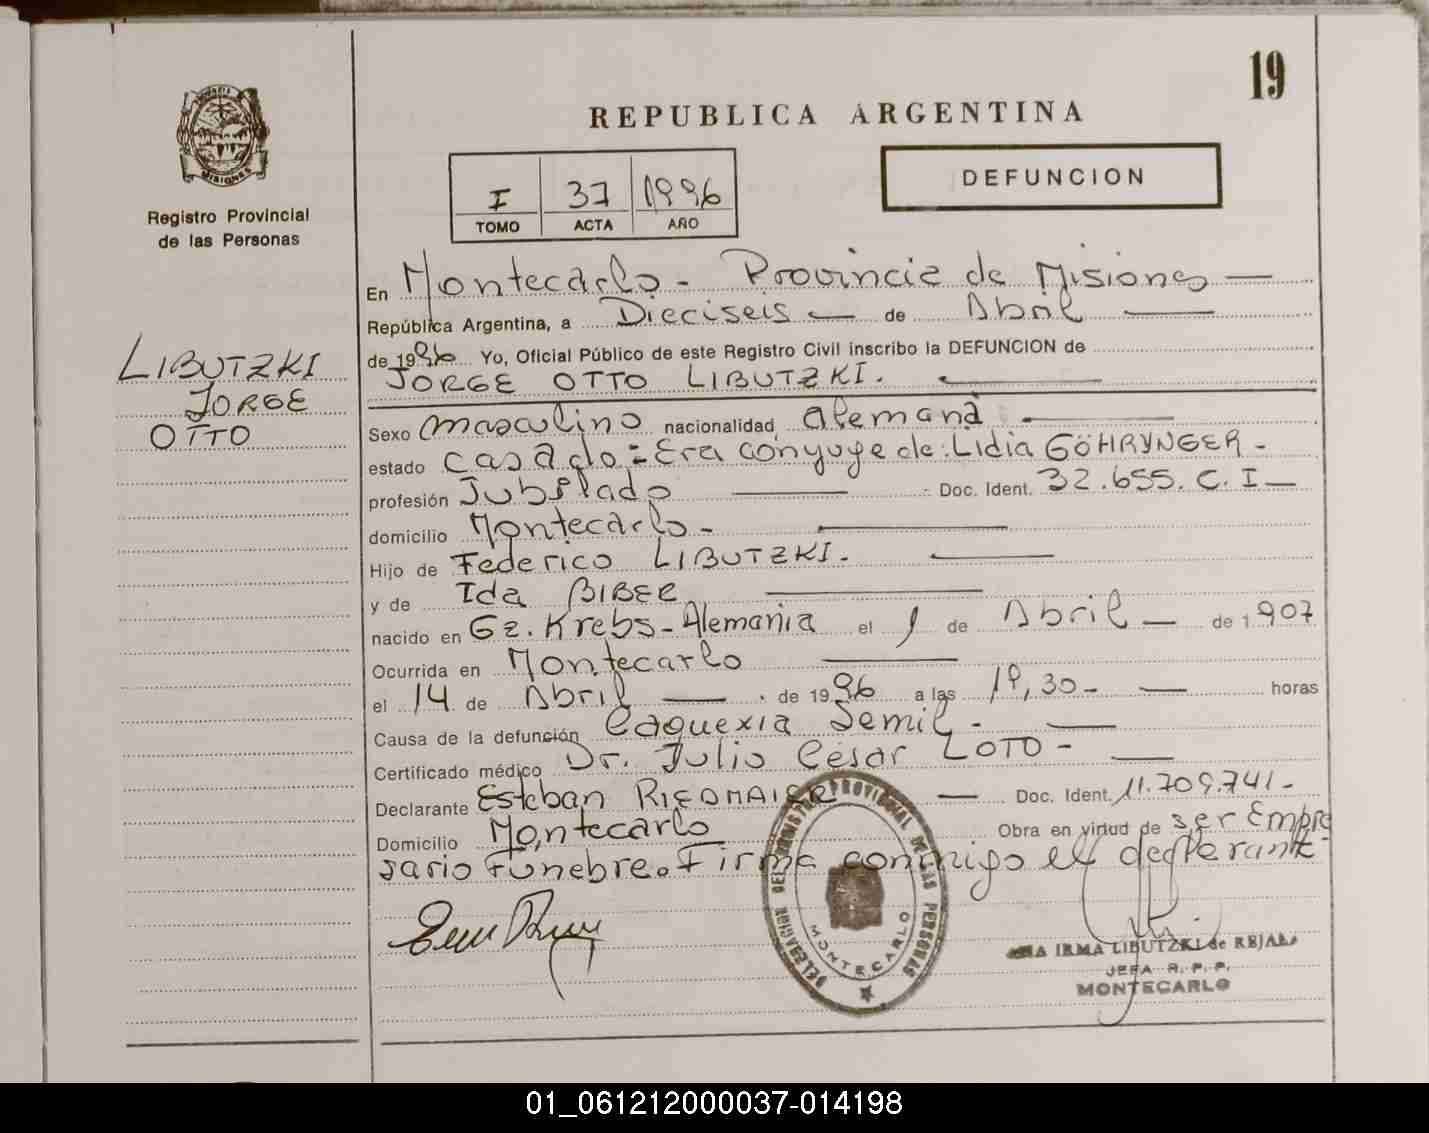 19
REPUBLICA ARGENTINA
MISIONES
Registro Provincial
de las Personas
I 37 1996
TOMO ACTA AÑO
DEFUNCION
LIBUTZKI
JORGE
OTTO
En Montecarlo - Provincia de Misiones —
República Argentina, a Dieciseis — de Abril —
de 1996 Yo, Oficial Público de este Registro Civil inscribo la DEFUNCION de
JORGE OTTO LIBUTZKI. —
Sexo masculino nacionalidad alemana —
estado casado = Era cónyuge de: Lidia GÖHRYNGER -
profesión Jubilado — Doc. Ident. 32.655. C. I —
domicilio Montecarlo - —
Hijo de Federico LIBUTZKI. —
y de Ida BIBER —
nacido en Gz. Krebs - Alemania el 1 de Abril — de 1.907
Ocurrida en Montecarlo —
el 14 de Abril — de 1996 a las 19,30 - — horas
Causa de la defunción Caquexia Semil - —
Certificado médico Dr. Julio César LOTO - —
Declarante Esteban RIEDMAIER — Doc. Ident. 11.709.741 -
Domicilio Montecarlo Obra en virtud de ser Empre
sario Fúnebre. Firma conmigo el declarante
DELEGACION DEL REGISTRO PROVINCIAL DE LAS PERSONAS
MONTECARLO
IRMA LIBUTZKI de REJALA
JEFA R. P. P.
MONTECARLO
01_061212000037-014198